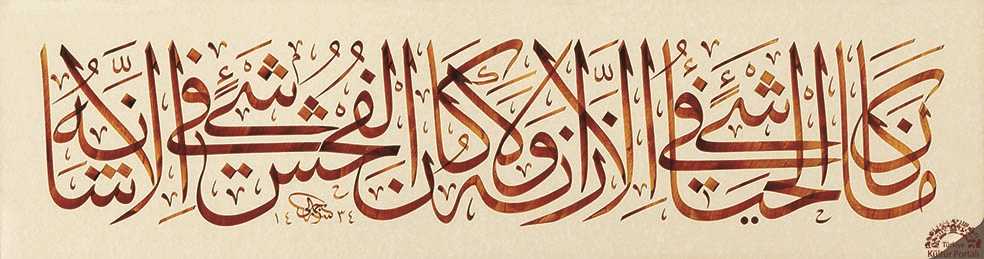 ما كان الحياء في شيء إلا زانه ولا كان الفحش في شيء إلا شانه
١٤٣٤
Türkiye
Kültür Portalı